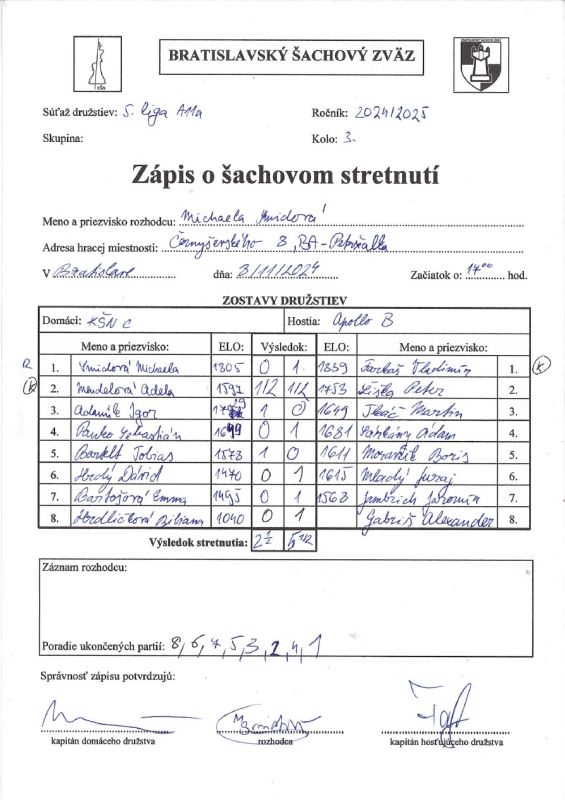 BRATISLAVSKÝ ŠACHOVÝ ZVÄZ
KŠN
Súťaž družstiev: 5. liga A11a Ročník: 2024/2025
Skupina: Kolo: 3.
Zápis o šachovom stretnutí
Meno a priezvisko rozhodcu: Michaela Šmidová
Adresa hracej miestnosti: Černyševského 8, BA-Petržalka
V Bratislave dňa: 3/11/2024 Začiatok o: 14⁰⁰ hod.
ZOSTAVY DRUŽSTIEV
Domáci: KŠN C Hostia: Apollo B
Meno a priezvisko: ELO: Výsledok: ELO: Meno a priezvisko:
R 1. Šmidová Michaela 1805 0 1 1839 Farkaš Vladimír 1. K
K 2. Mendelová Adela 1597 1/2 1/2 1753 Líška Peter 2.
3. Adamík Igor 1 0 1649 Tkáč Martin 3.
4. Panko Sebastián 0 1 1681 Sárkány Adam 4.
5. Barklt Tobias 1573 1 0 1611 Moravčík Boris 5.
6. Hrdý Dávid 1470 0 1 1615 Mladý Juraj 6.
7. Bartošová Emma 1495 0 1 1563 Jambrich Jaromír 7.
8. Hrdličková Biliana 1040 0 1 Gabriš Alexander 8.
Výsledok stretnutia: 2 1/2 5 1/2
Záznam rozhodcu:
Poradie ukončených partií: 8, 6, 7, 5, 3, 2, 4, 1
Správnosť zápisu potvrdzujú:
kapitán domáceho družstva rozhodca kapitán hosťujúceho družstva